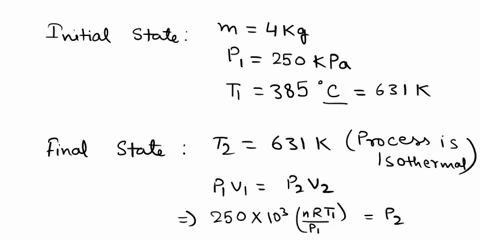 Initial State: m = 4 Kg
P₁ = 250 KPa
T₁ = 385 °C = 631 K
Final State: T₂ = 631 K (Process is Isothermal)
P₁V₁ = P₂V₂
=) 250 × 10³ (nRT₁/P₁) = P₂